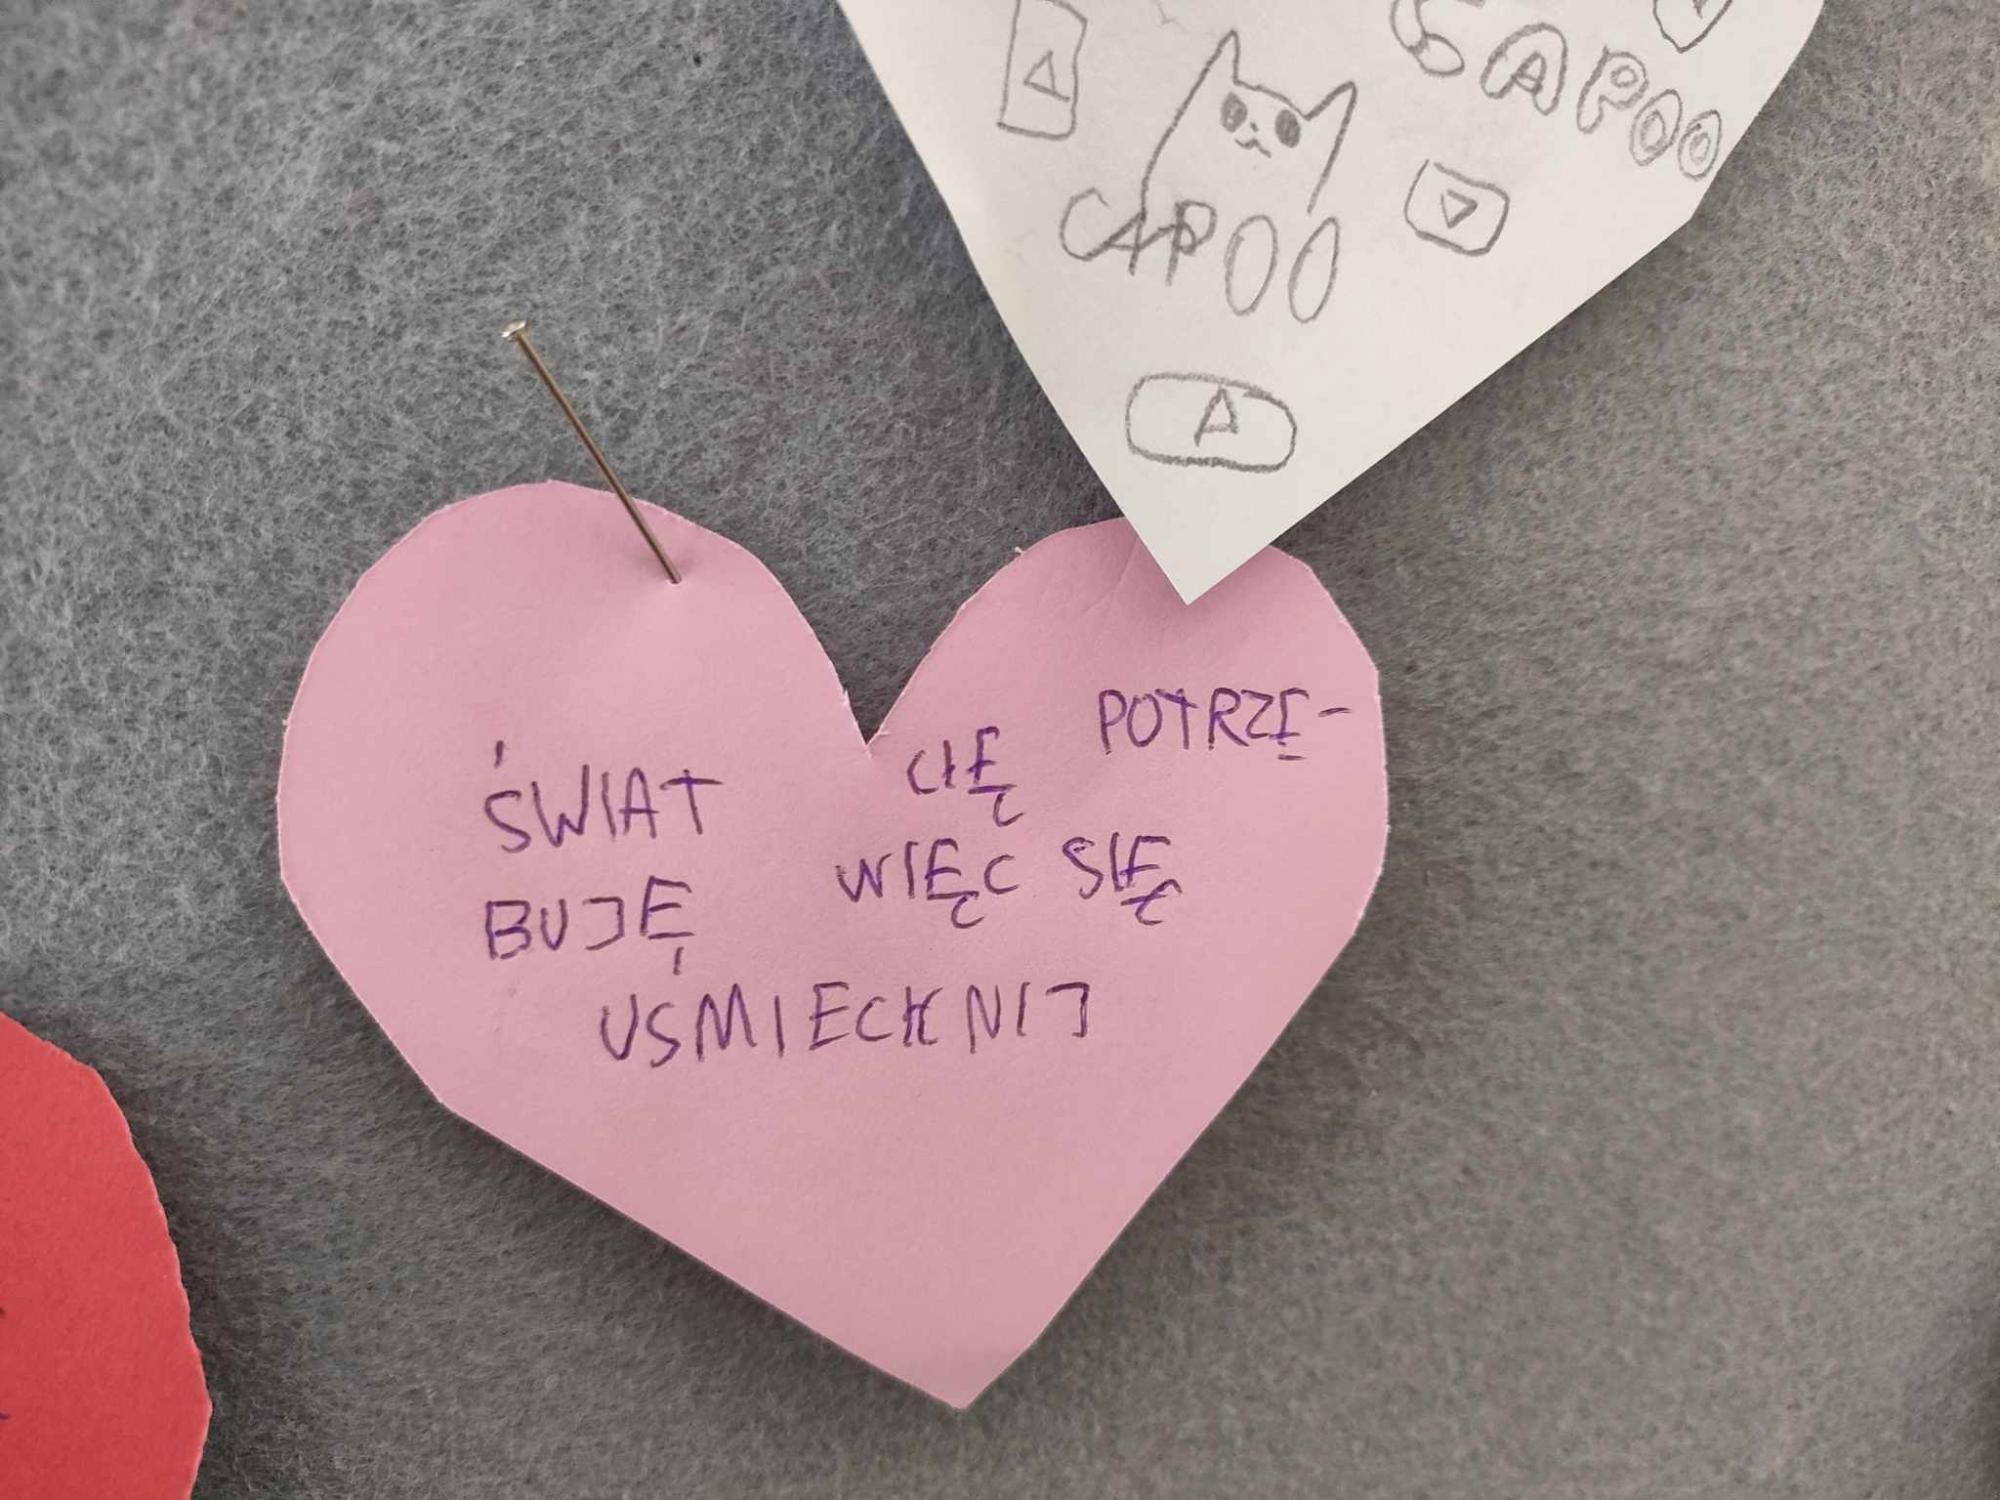 CAPOO
CAPOO
ŚWIAT CIĘ POTRZE-
BUJE WIĘC SIĘ
UŚMIECHNIJ